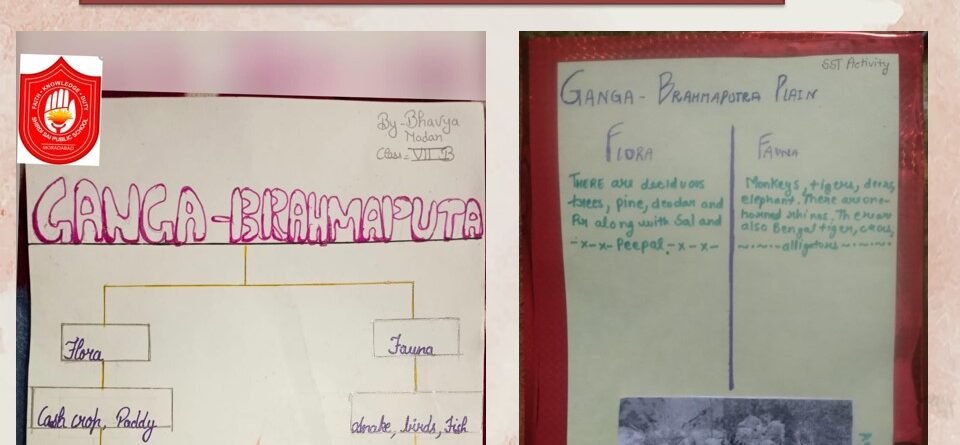 FAITH • KNOWLEDGE • DUTY
SHIRDI SAI PUBLIC SCHOOL
MORADABAD
By-Bhavya
Madan
Class = VII B
GANGA-BRAHMAPUTA
Flora
Fauna
Cash crop, Paddy
snake, birds, Fish
SST Activity
GANGA - BRAHMAPUTRA PLAIN
FLORA
THERE are deciduos
trees, pine, deodar and
Fir along with Sal and
-x-x- Peepal.-x-x-
FAUNA
Monkeys, tigers, deers,
elephant. There are one-
horned rhinos. There are
also Bengal tiger, crocs,
alligators